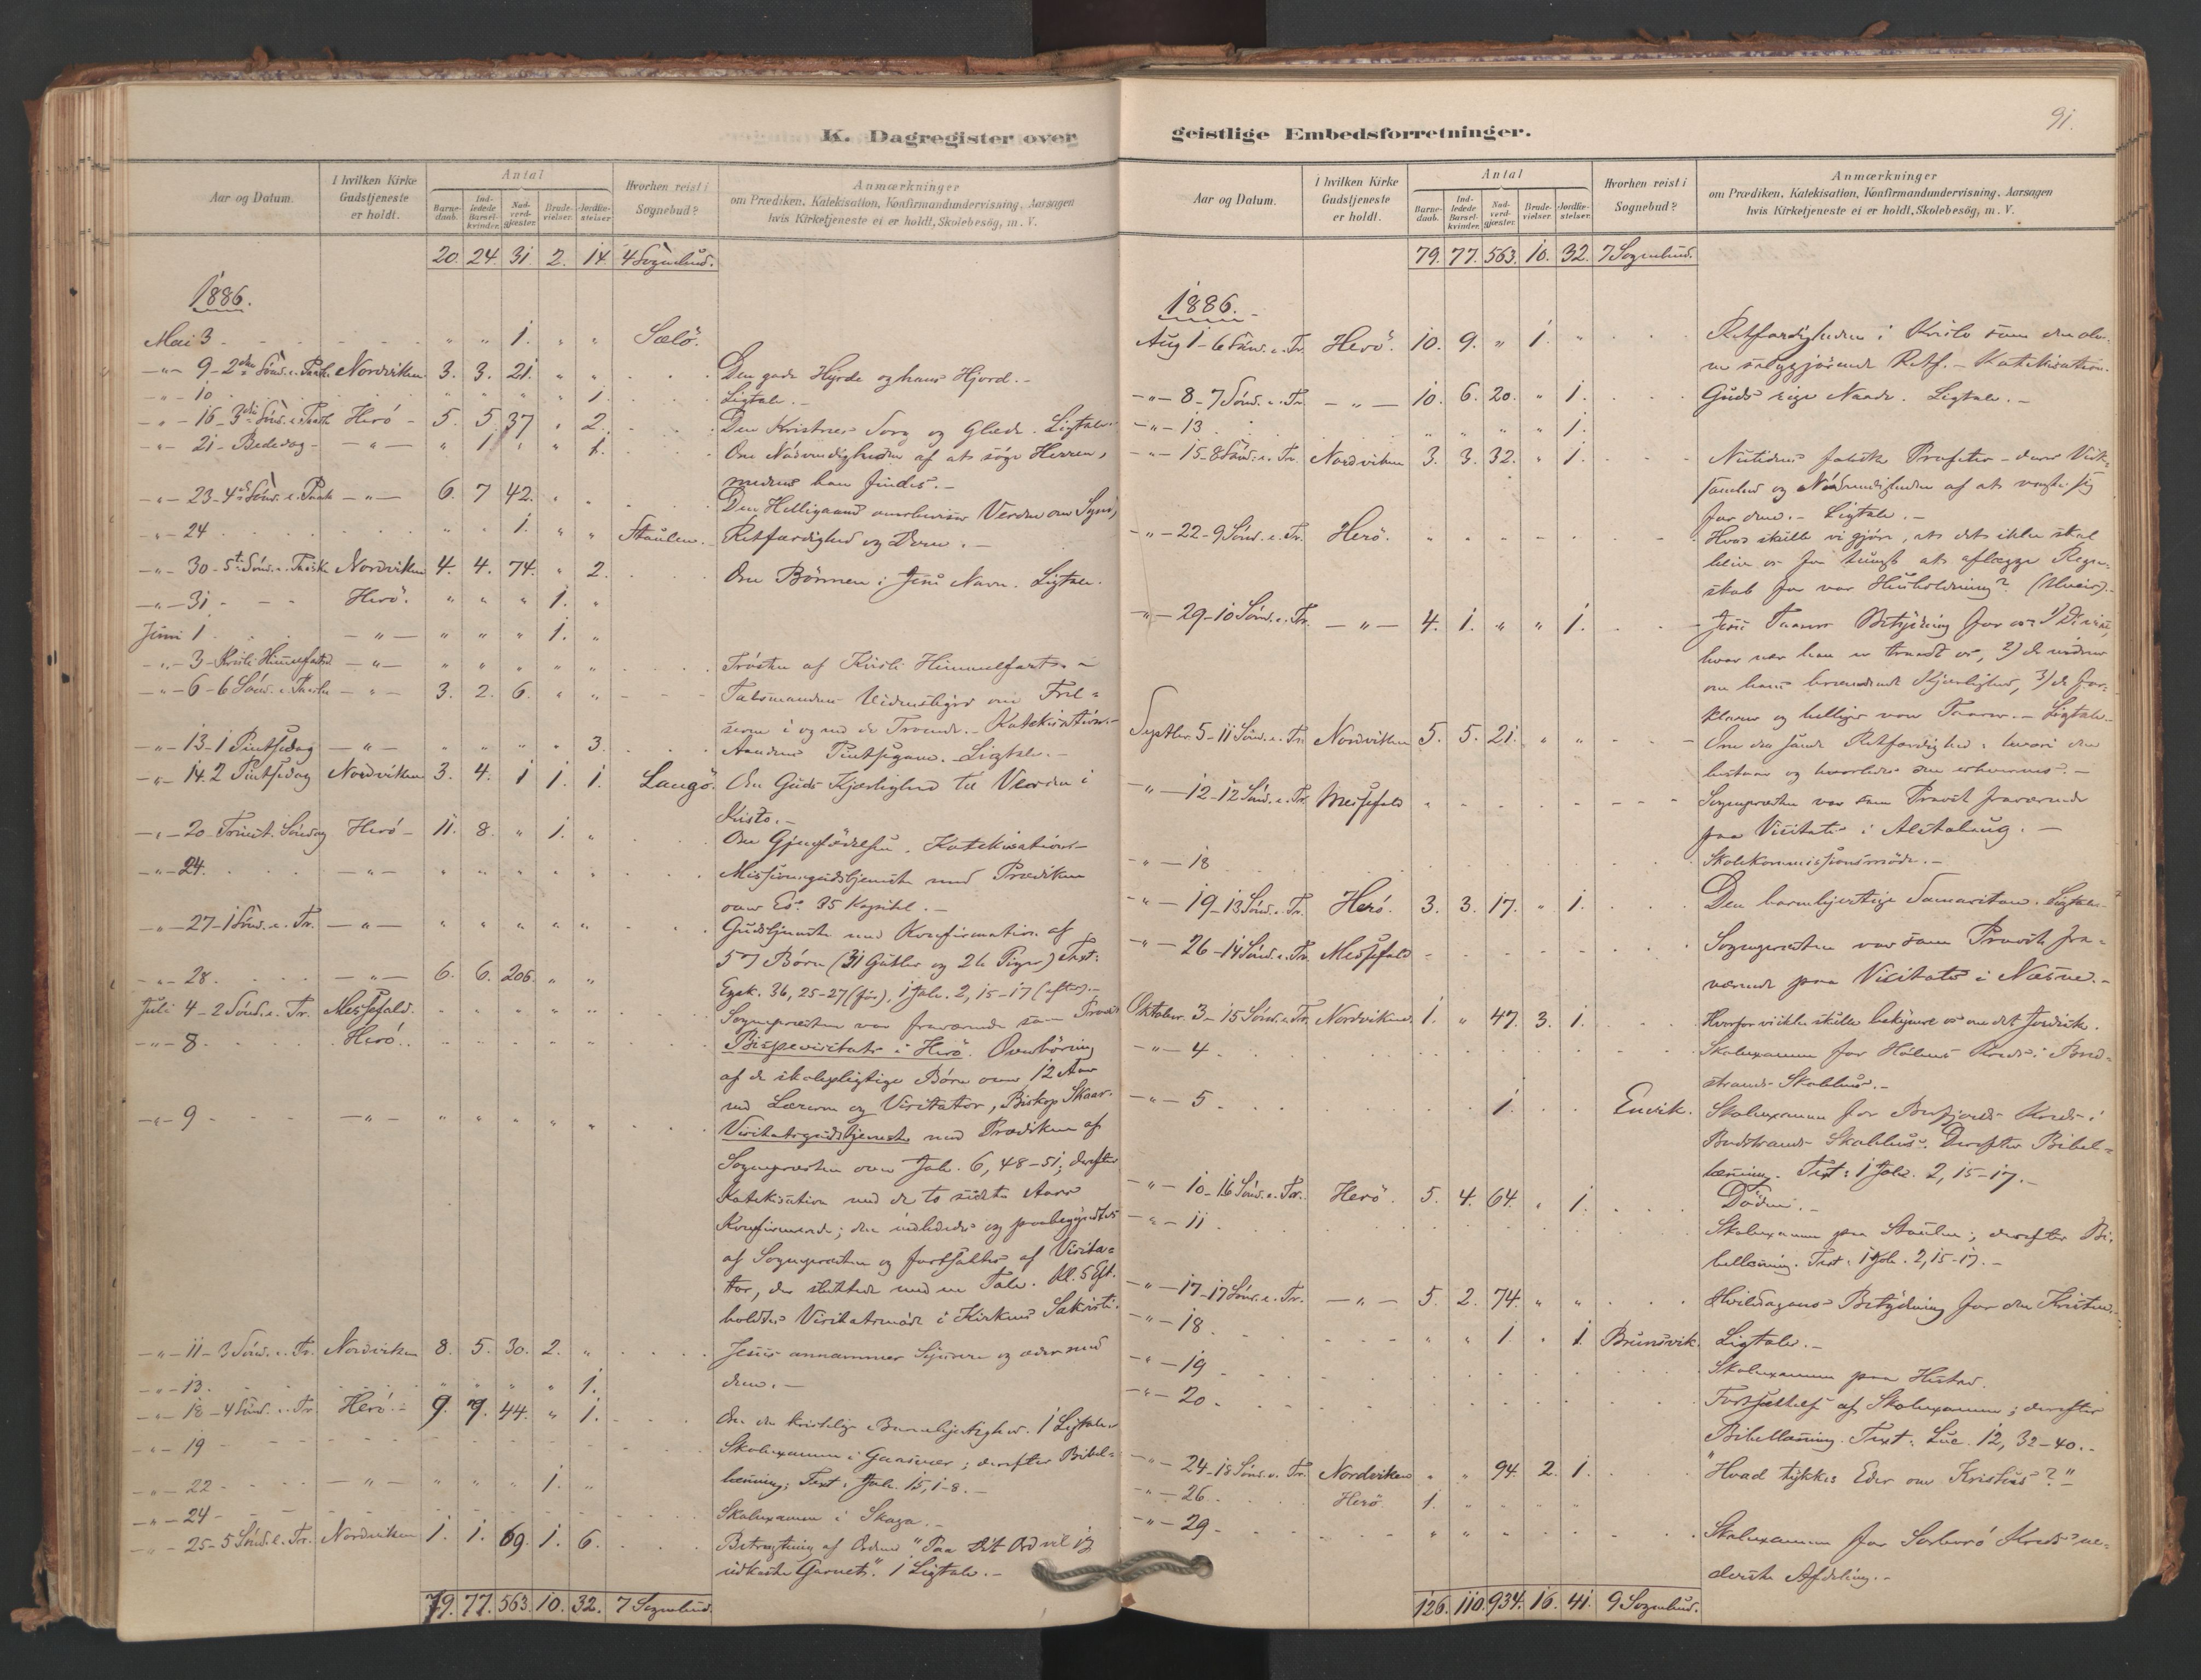 K. Dagregister over
Aar og Datum.
I hvilken Kirke Gudstjeneste er holdt.
Antal
Barne-daab.
Ind-ledede Barsel-kvinder.
Nad-verd-gjester.
Brude-vielser.
Jordfæ-stelser
Hvorhen reist i Sognebud?
Anmærkninger
om Prædiken, Katekisation, Konfirmandundervisning, Aarsagen
hvis Kirketjeneste ei er holdt, Skolebesög, m. V.
20. 24. 31. 2. 14. 4 Sognebud.
1886.
Mai 3 " " 1. " " Salö.
-"- 9 - 2den Sönd. e. Paaske Nordviken 3. 3. 21. " " Den gode Hyrde og hans Hjord. -
-"- 10 " " " " 1. Ligtale. -
-"- 16 - 3die Sönd. e. Paaske Herö - 5. 5. 37 " 2. Den Kristnes Sorg og Glæde. Ligtale.
-"- 21 - Bededag - -"- " 1 1 " 1. Om Nödvendigheden af at söge Herren,
medens han findes. -
-"- 23 - 4de Sönd. e. Paask -"- 6. 7 42. " " Den Helligaand overbeviser Verden om Synd,
-"- 24 " " 1. " " Staulen. - Retfærdighed og Dom. -
-"- 30 - 5te Sönd. e. Paaske Nordviken 4. 4. 74. " 2. Om Bönnen i Jesu Navn. Ligtale.
-"- 31 - Herö. " " " 1. "
Juni 1 -"- " " " 1. "
-"- 3 - Kristi Himmelfartsd -"- " " " " " Trösten af Kristi Himmelfart. -
-"- 6 - 6 Sönd. e. Paaske -"- 3. 2. 6. " " Talsmandens Vidnesbyrd om Frel-
seren i og ved de Troende. - Katekisation. -
-"- 13 - 1 Pintsedag -"- " " " " 3. Aandens Pintsegave. Ligtale. -
-"- 14. 2 Pintsedag Nordviken 3. 4. 1 1. 1. Langö. Om Guds Kjærlighed til Verden i
Kristo. -
-"- 20 - Trinit. Söndag Herö - 11. 8. " 1. " Om Gjenfödelsen. Katekisation -
-"- 24. -"- " " " " " Missionsgudstjeneste med Prædiken
over Es. 35 Kapitel. -
-"- 27 - 1 Sönd. e. Tr. -"- " " " " " Gudstjeneste med Konfirmation af
57 Börn (31 Gutter og 26 Piger) Text:
-"- 28. -"- 6. 6. 206. " " Ezek. 36, 25-27 (för), 1 Joh. 2, 15-17 (efter). -
Juli 4 - 2 Sönd. e. Tr. Messefald. " " " " " Sognepresten var fraværende som Provst
-"- 8 Herö. Bispevisitats i Herö. Overhöring
af de skolepligtige Börn over 12 Aar
ved Læreren og Visitator, Biskop Skaar.
-"- 9 -"- " " " " " Visitatsgudstjeneste med Prædiken af
Sognepresten over Joh. 6, 48-51; derefter
Katekisation med de to sidste Aars
Konfirmerede; den indlededes og paabegyndtes
af Sognepresten og fortsattes af Visita-
tor, der sluttede med en Tale. Kl. 5 Eft.
holdtes Visitatsmöde i Kirkens Sakristi.
-"- 11 - 3 Sönd. e. Tr. Nordviken 8. 5. 30. 2. " Jesus annammer Syndere og æder med
-"- 13. " " " " 1. dem. -
-"- 18 - 4 Sönd. e. Tr. Herö. - 9. 7. 44. " 1. Om den kristelige Barmhjertighed. 1 Ligtale
-"- 19 Skolexamen i Gaasvær; derefter Bibel-
-"- 22 -"- " " " 1. " læsning; Text: Joh. 15, 1-8. -
-"- 24 - Skolexamen i Skaga. -
-"- 25 - 5 Sönd. e. Tr. Nordviken 1. 1. 69. 1. 6. Betragtning af Ordene "Paa dit Ord vil jeg
udkaste Garnet". 1 Ligtale. -
79. 77. 563. 10. 32. 7 Sognebud.
91.
geistlige Embedsforretninger.
Aar og Datum.
I hvilken Kirke Gudstjeneste er holdt.
Antal
Barne-daab.
Ind-ledede Barsel-kvinder.
Nad-verd-gjester.
Brude-vielser.
Jordfæ-stelser.
Hvorhen reist i Sognebud?
Anmærkninger
om Prædiken, Katekisation, Konfirmandundervisning, Aarsagen
hvis Kirketjeneste ei er holdt, Skolebesög, m. V.
79. 77. 563. 10. 32. 7 Sognebud.
1886.
Aug 1 - 6 Sönd. e. Tr. Herö. 10. 9. " 1. " Retfærdigheden i Kristo som den ale-
ne saliggjörende Retf. - Katekisation.
-"- 8 - 7 Sönd. e. Tr. -"- 10. 6. 20. " 1. Guds rige Naade. Ligtale. -
-"- 13 " " " " 1.
-"- 15 - 8 Sönd. e. Tr. Nordviken 3. 3. 32. " 1. Nutidens falske Profeter - deres Virk-
somhed og Nödvendigheden af at vogte sig
for dem. - Ligtale. -
-"- 22 - 9 Sönd. e. Tr. Herö. Hvad skulle vi gjöre, at det ikke skal
blive os for tungt at aflægge Regn-
skab for vor Husholdning?
-"- 29 - 10 Sönd. e. Tr. -"- 4. 1. " " 1. Jesu Taarers Betydning for os: 1)
hvor nær han er traadt os, 2) de vidner
om hans brændende Kjærlighed, 3) de for-
klarer og helliger vore Taarer. - Ligtale -
Septbr. 5 - 11 Sönd. e. Tr. Nordviken 5. 5. 21. " " Om den sande Retfærdighed: hvori den
bestaar og hvorledes den erhverves. -
-"- 12 - 12 Sönd. e. Tr. Messefald Sognepresten var som Provst fraværende
paa Visitats i Alstahaug. -
-"- 18 Skolekommissionsmöde. -
-"- 19 - 13 Sönd. e. Tr. Herö. 3. 3. 17. " 1. Den barmhjertige Samaritan. Ligtale -
-"- 26 - 14 Sönd. e. Tr. Messefald Sognepresten var som Provst fra-
værende paa Visitats i Næsne. -
Oktober. 3 - 15 Sönd. e. Tr. Nordviken. 1. " 47. 3. 1. Hvorfor vi ikke skulle bekymre os om det Jordiske.
-"- 4. Skolexamen for Holmens Kreds i Bred-
strands Skolehus. -
-"- 5 1. Envik. Skolexamen for Kreds i
Skolehus. Derefter Bibel-
læsning. Text: 1 Joh. 2, 15-17. -
-"- 10 - 16 Sönd. e. Tr. Herö. 5. 4. 64. " 1. Döden. -
-"- 11 Skolexamen paa Staulen; derefter Bi-
bellæsning. Text: 1 Joh. 2, 15-17. -
-"- 17 - 17 Sönd. e. Tr. -"- 5. 2. 74. " " Hviledagens Betydning for den Kristne. -
-"- 18. " " 1. " 1 Brunsvik. Ligtale. -
-"- 19 Skolexamen paa Husvad.
-"- 20 Fortsættelse af Skolexamen; derefter
Bibellæsning. Text: Luc. 12, 32-40. -
-"- 24 - 18 Sönd. e. Tr. Nordviken " " 94. 2. 1. "Hvad tykkes Eder om Kristus?" -
-"- 26. Herö. 1. " " " "
-"- 29 - Skolexamen for Kreds' ne-
derste Afdeling. -
126. 110. 934. 16. 41. 9 Sognebud.